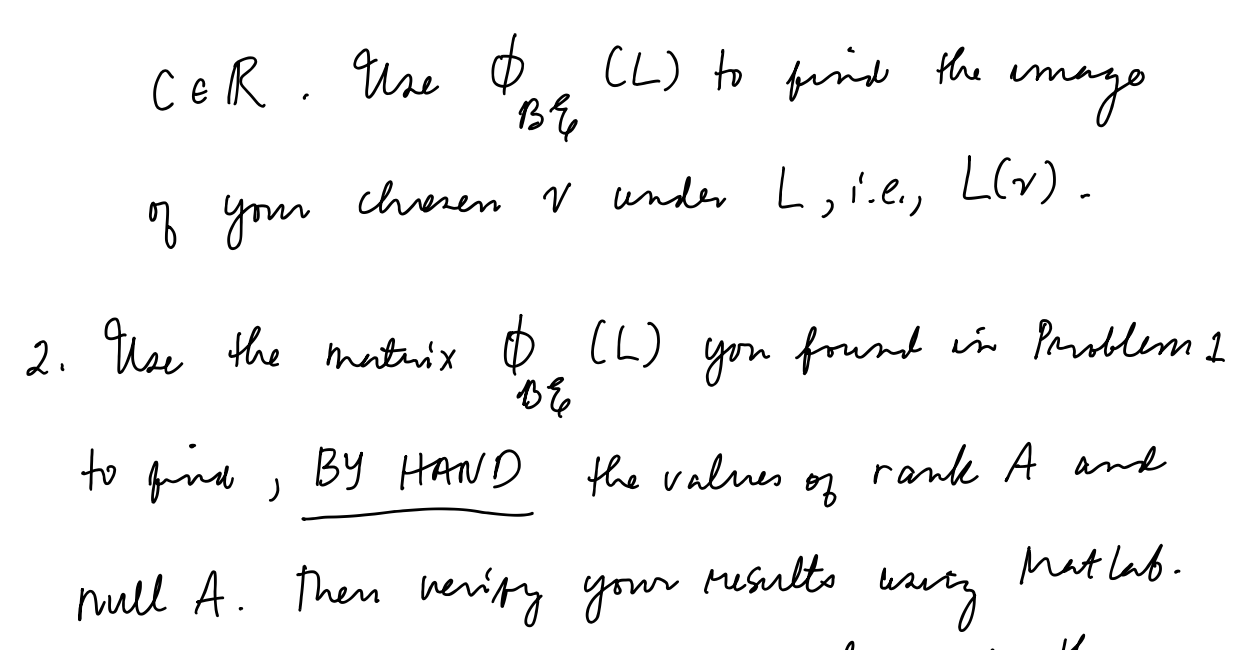 C ∈ ℝ. Use ϕ_{BE} (L) to find the image
of your chosen v under L, i.e., L(v).
2. Use the matrix ϕ_{BE} (L) you found in Problem 1
to find, BY HAND the values of rank A and
null A. Then verify your results using Matlab.